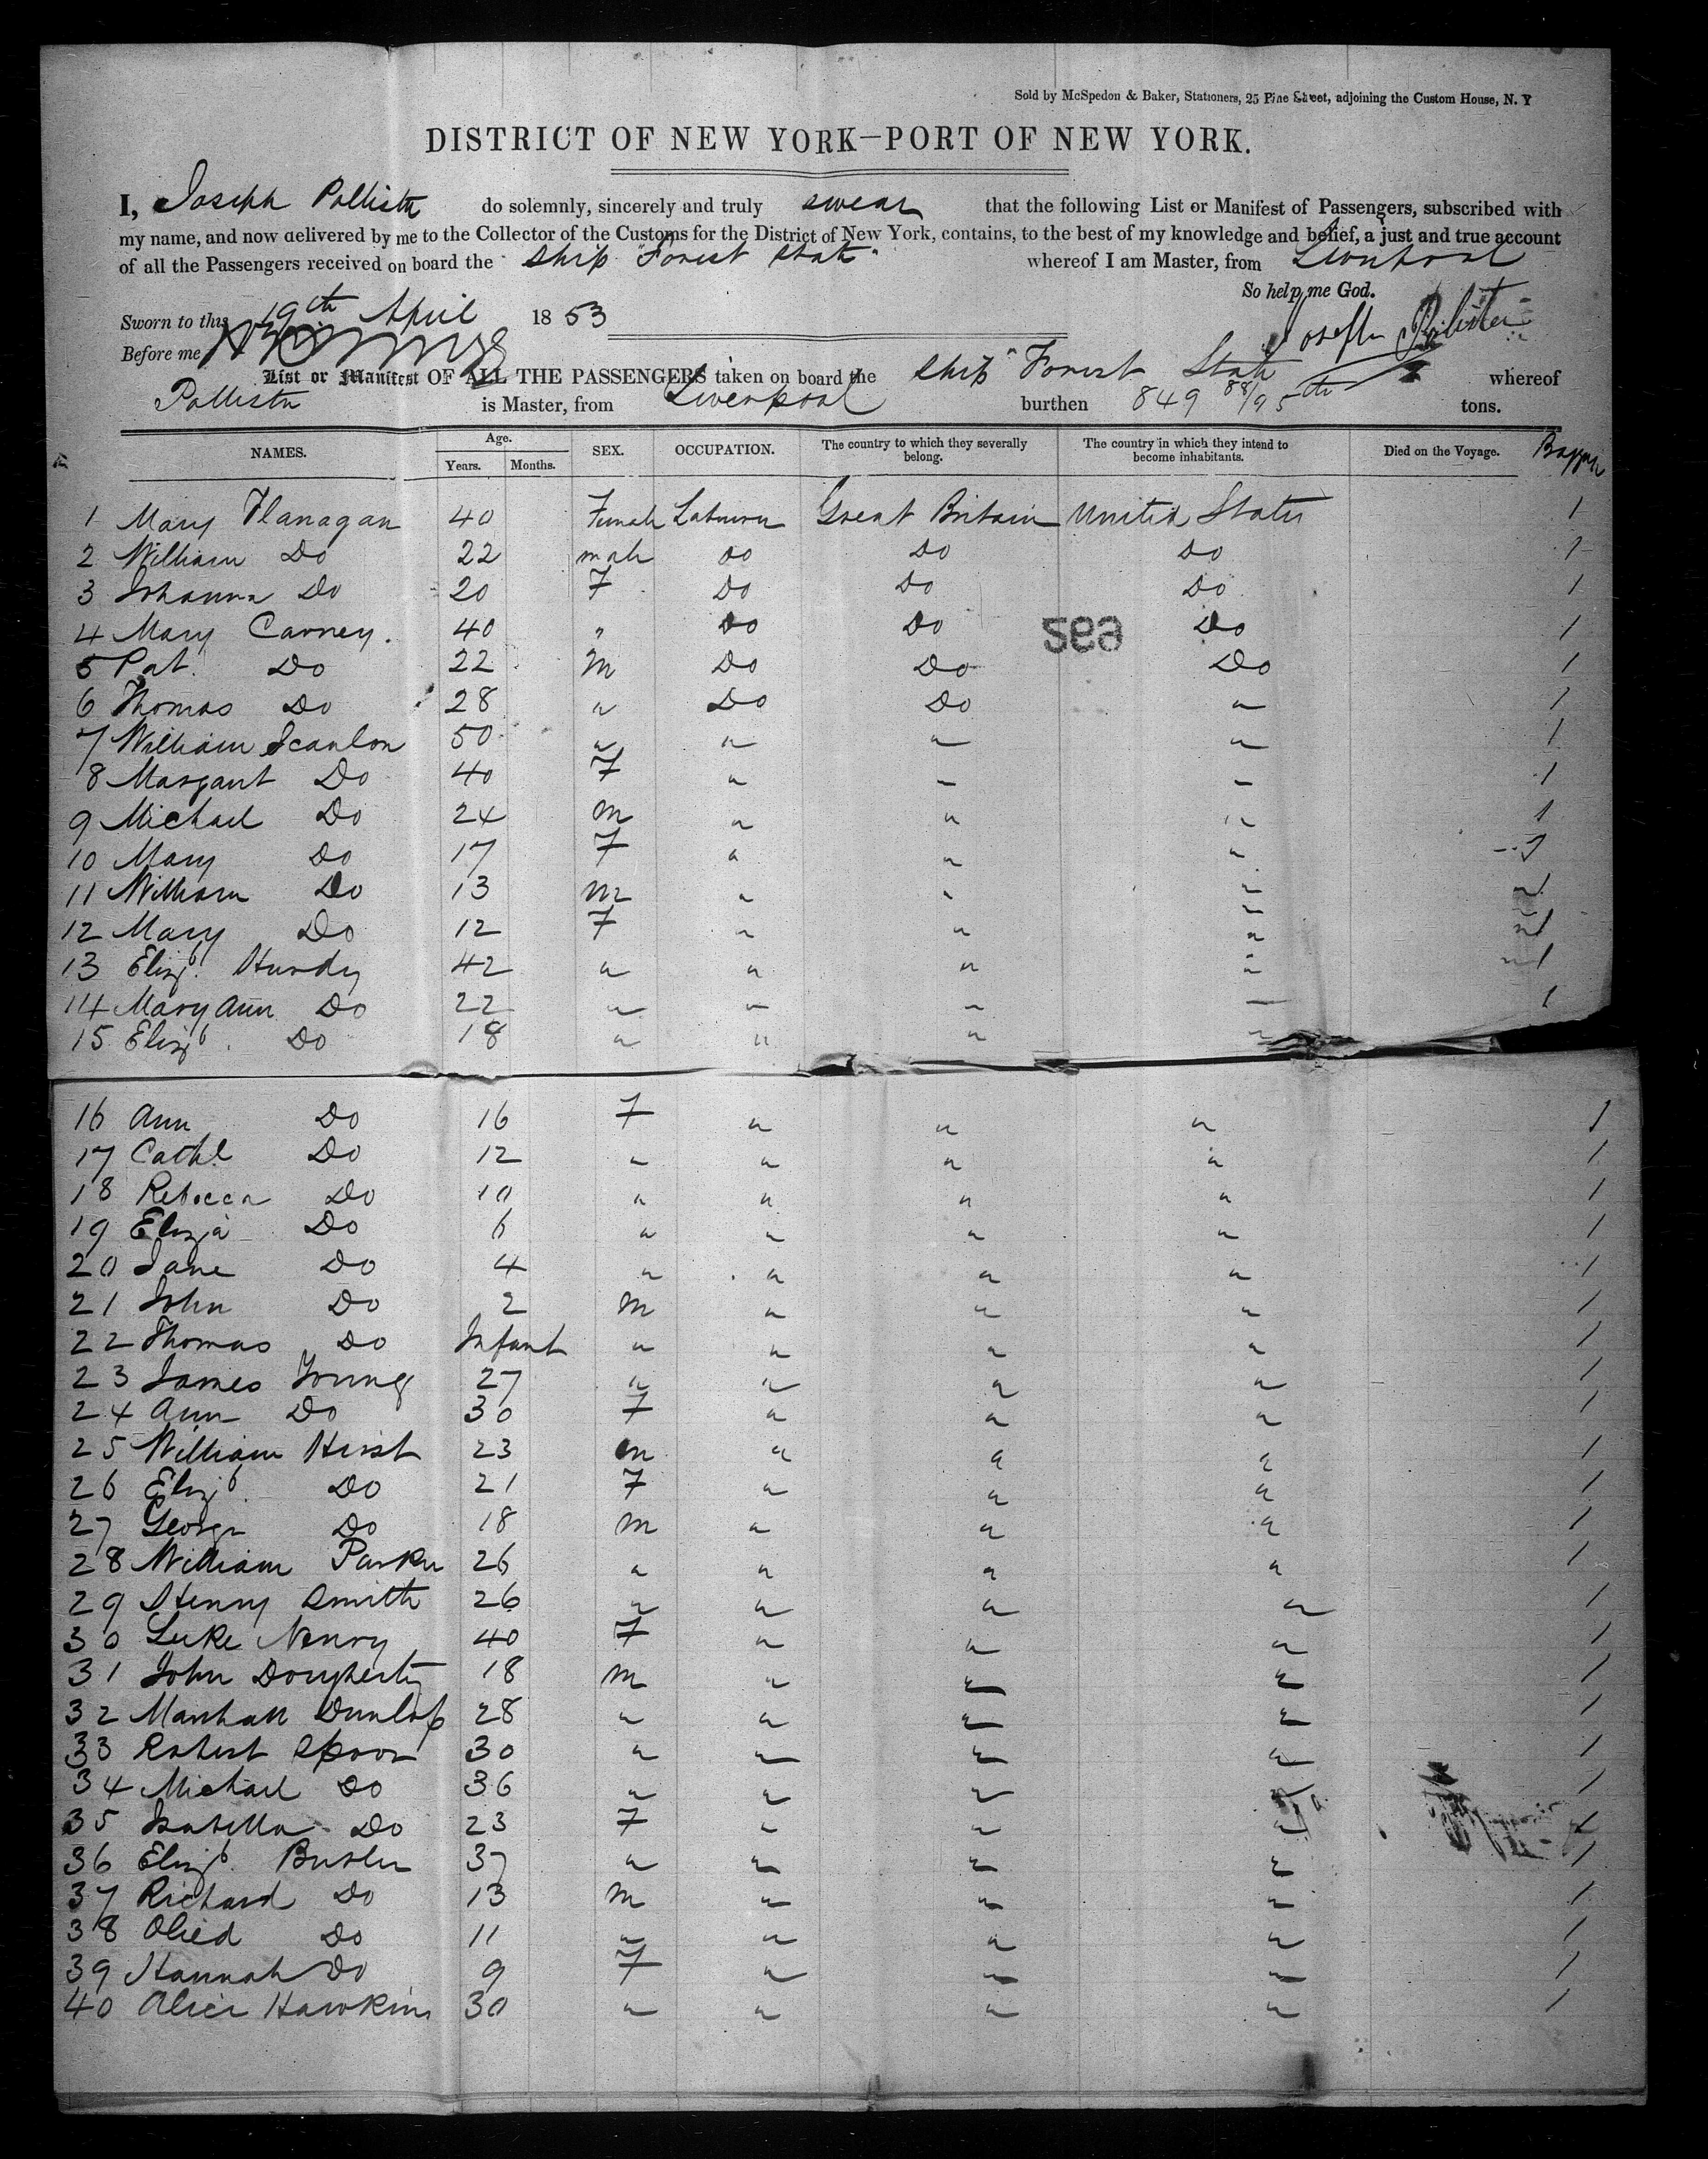 Sold by McSpedon & Baker, Stationers, 25 Pine Street, adjoining the Custom House, N. Y
DISTRICT OF NEW YORK—PORT OF NEW YORK.
I, Joseph Pollister do solemnly, sincerely and truly swear that the following List or Manifest of Passengers, subscribed with
my name, and now delivered by me to the Collector of the Customs for the District of New York, contains, to the best of my knowledge and belief, a just and true account
of all the Passengers received on board the Ship "Forest State" whereof I am Master, from Liverpool
So help me God.
Sworn to this 19th April 1853
Joseph Pollister
Before me
List or Manifest OF ALL THE PASSENGERS taken on board the Ship "Forest State whereof
Pollister is Master, from Liverpool burthen 849 88/95th tons.
NAMES. Age. Years. Months. SEX. OCCUPATION. The country to which they severally belong. The country in which they intend to become inhabitants. Died on the Voyage.
1 Mary Flanagan 40 Female Labourer Great Britain United States 1
2 William Do 22 male Do Do Do 1
3 Johanna Do 20 F Do Do Do 1
4 Mary Carney. 40 " Do Do Do 1
5 Pat. Do 22 M Do Do Do 1
6 Thomas Do 28 " Do Do " 1
7 William Scanlon 50 " " " " 1
8 Margaret Do 40 F " " " 1
9 Michael Do 24 M " " " 1
10 Mary Do 17 F " " " 1
11 William Do 13 M " " " 1
12 Mary Do 12 F " " " 1
13 Elizb. Hurdy 42 " " " " 1
14 Mary Ann Do 22 " " " " 1
15 Elizb. Do 18 " " " "
16 Ann Do 16 F " " " 1
17 Cathe Do 12 " " " " 1
18 Rebecca Do 10 " " " " 1
19 Eliza Do 6 " " " " 1
20 Jane Do 4 " " " " 1
21 John Do 2 M " " " 1
22 Thomas Do Infant " " " " 1
23 James Young 27 " " " " 1
24 Ann Do 30 F " " " 1
25 William Hirst 23 M " " " 1
26 Elizb. Do 21 F " " " 1
27 George Do 18 M " " " 1
28 William Parker 26 " " " " 1
29 Henry Smith 26 " " " " 1
30 Luke 40 F " " " 1
31 John Dougherty 18 M " " " 1
32 Marshall Dunlop 28 " " " " 1
33 Robert Spoor 30 " " " " 1
34 Michael Do 36 " " " " 1
35 Isabella Do 23 F " " " 1
36 Elizb. Butler 37 " " " " 1
37 Richard Do 13 M " " " 1
38 Do 11 " " " " 1
39 Hannah Do 9 F " " " 1
40 Alice Hawkins 30 " " " " 1